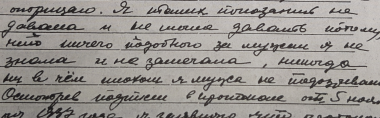 отрицаю. Я таких показаний не
давала и не могла давать потому,
что ничего подобного за мужем я не
знала и не замечала, никогда
ни в чём плохом я мужа не подозревала
Осмотрев подписи в протоколе от 5 нояб
я заявляю, что